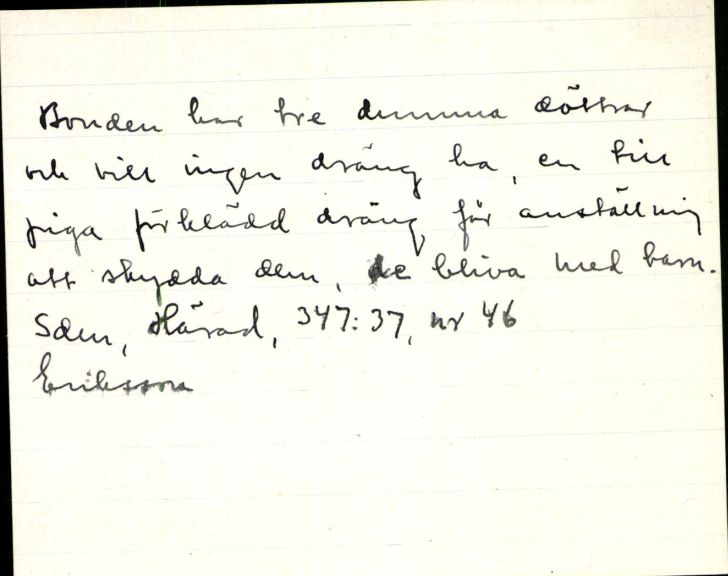 Bonden har tre dumma döttrar
och vill ingen dräng ha, en till
piga förklädd dräng får anställning
att skydda dem, de bliva med barn.
Sdm, Härad, 347:37, nr 46
Eriksson